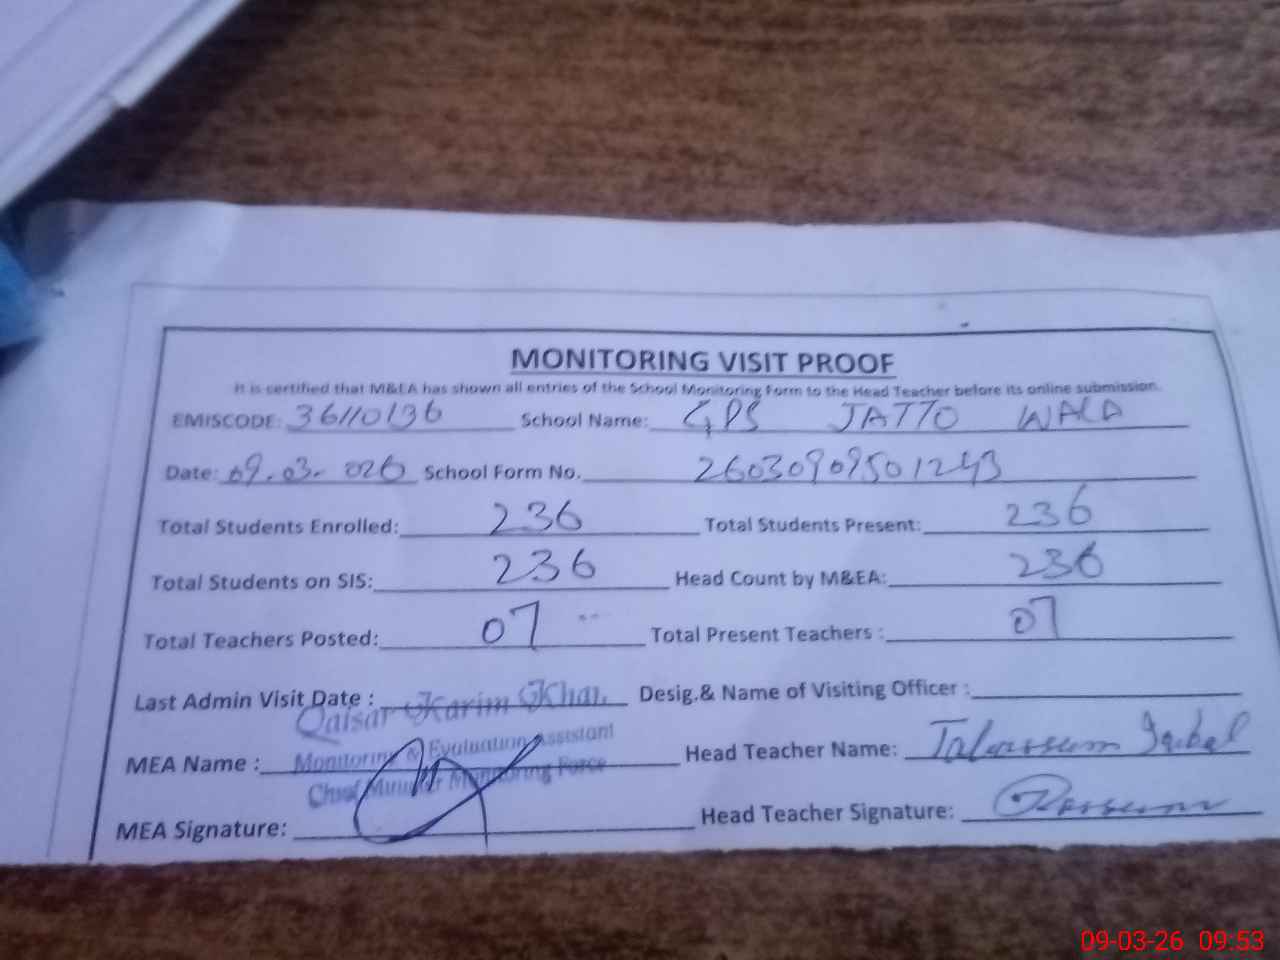 MONITORING VISIT PROOF
It is certified that M&EA has shown all entries of the School Monitoring Form to the Head Teacher before its online submission.
EMISCODE: 36110136 School Name: GPS JATTO WALA
Date: 09.03.026 School Form No. 26030909501243
Total Students Enrolled: 236 Total Students Present: 236
Total Students on SIS: 236 Head Count by M&EA: 236
Total Teachers Posted: 07 Total Present Teachers : 07
Last Admin Visit Date : Desig.& Name of Visiting Officer :
Qaisar Karim Khan
Monitoring & Evaluation Assistant
Chief Minister Monitoring Force
MEA Name : Head Teacher Name: Tabassum Iqbal
MEA Signature: Head Teacher Signature:
09-03-26 09:53